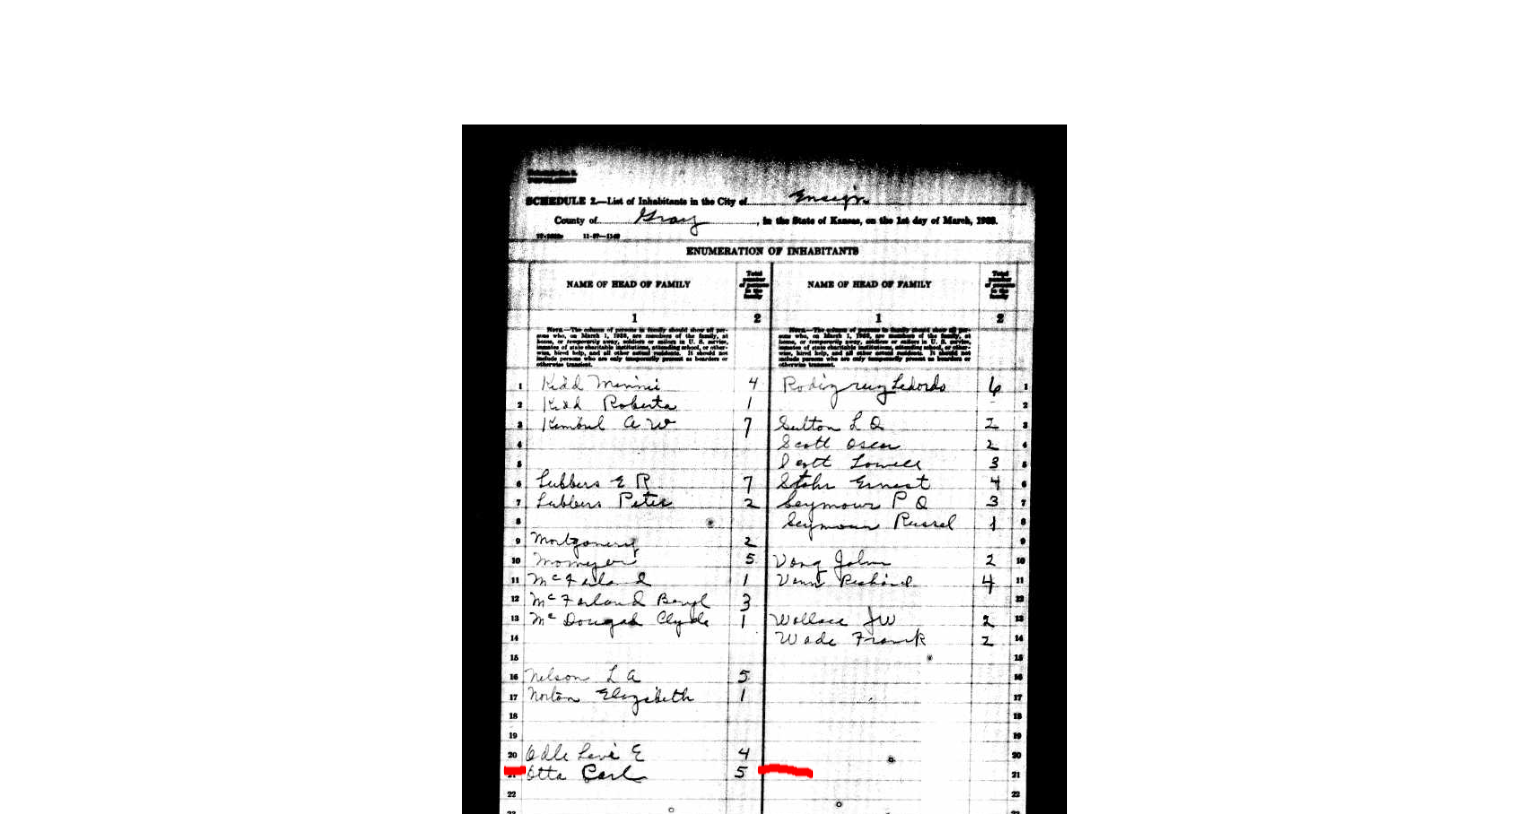 SCHEDULE 2.—List of Inhabitants in the City of Ensign
County of Gray, in the State of Kansas, on the 1st day of March, 1938.
ENUMERATION OF INHABITANTS
NAME OF HEAD OF FAMILY
Total number of persons in the family
NAME OF HEAD OF FAMILY
Total number of persons in the family
1 2 1 2
NOTE.—The column of persons in family should show all persons who, on March 1, 1938, are members of the family, at home, or temporarily away, soldiers or sailors in U. S. service, inmates of state charitable institutions, attending school, or otherwise, hired help, and all other actual residents. It should not include persons who are only temporarily present as boarders or otherwise transient.
NOTE.—The column of persons in family should show all persons who, on March 1, 1938, are members of the family, at home, or temporarily away, soldiers or sailors in U. S. service, inmates of state charitable institutions, attending school, or otherwise, hired help, and all other actual residents. It should not include persons who are only temporarily present as boarders or otherwise transient.
1 Kidd Minnie 4 6 1
2 Kidd Roberta 1 2
3 A W 7 Sutton L O 2 3
4 Scott Oscar 2 4
5 Scott Lowell 3 5
6 Lubbers E R 7 Stohr Ernest 4 6
7 Lubbers Peter 2 Seymour P O 3 7
8 Seymour Russel 1 8
9 Montgomery 2 9
10 Momeyer 5 John 2 10
11 McFarland 1 Venn Richard 4 11
12 McFarland Beryl 3 12
13 McDougal Clyde 1 Wallace JW 2 13
14 Wade Frank 2 14
15 15
16 Nelson L A 5 16
17 Norton Elizabeth 1 17
18 18
19 19
20 Odle Levi E 4 20
21 Otta Carl 5 21
22 22